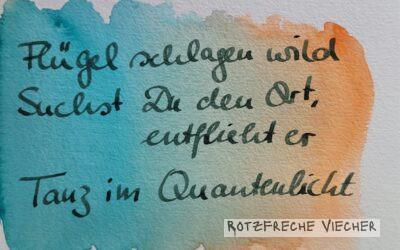 Flügel schlagen wild
Suchst Du den Ort,
entflieht er
Tanz im Quantenlicht
ROTZFRECHE VIECHER